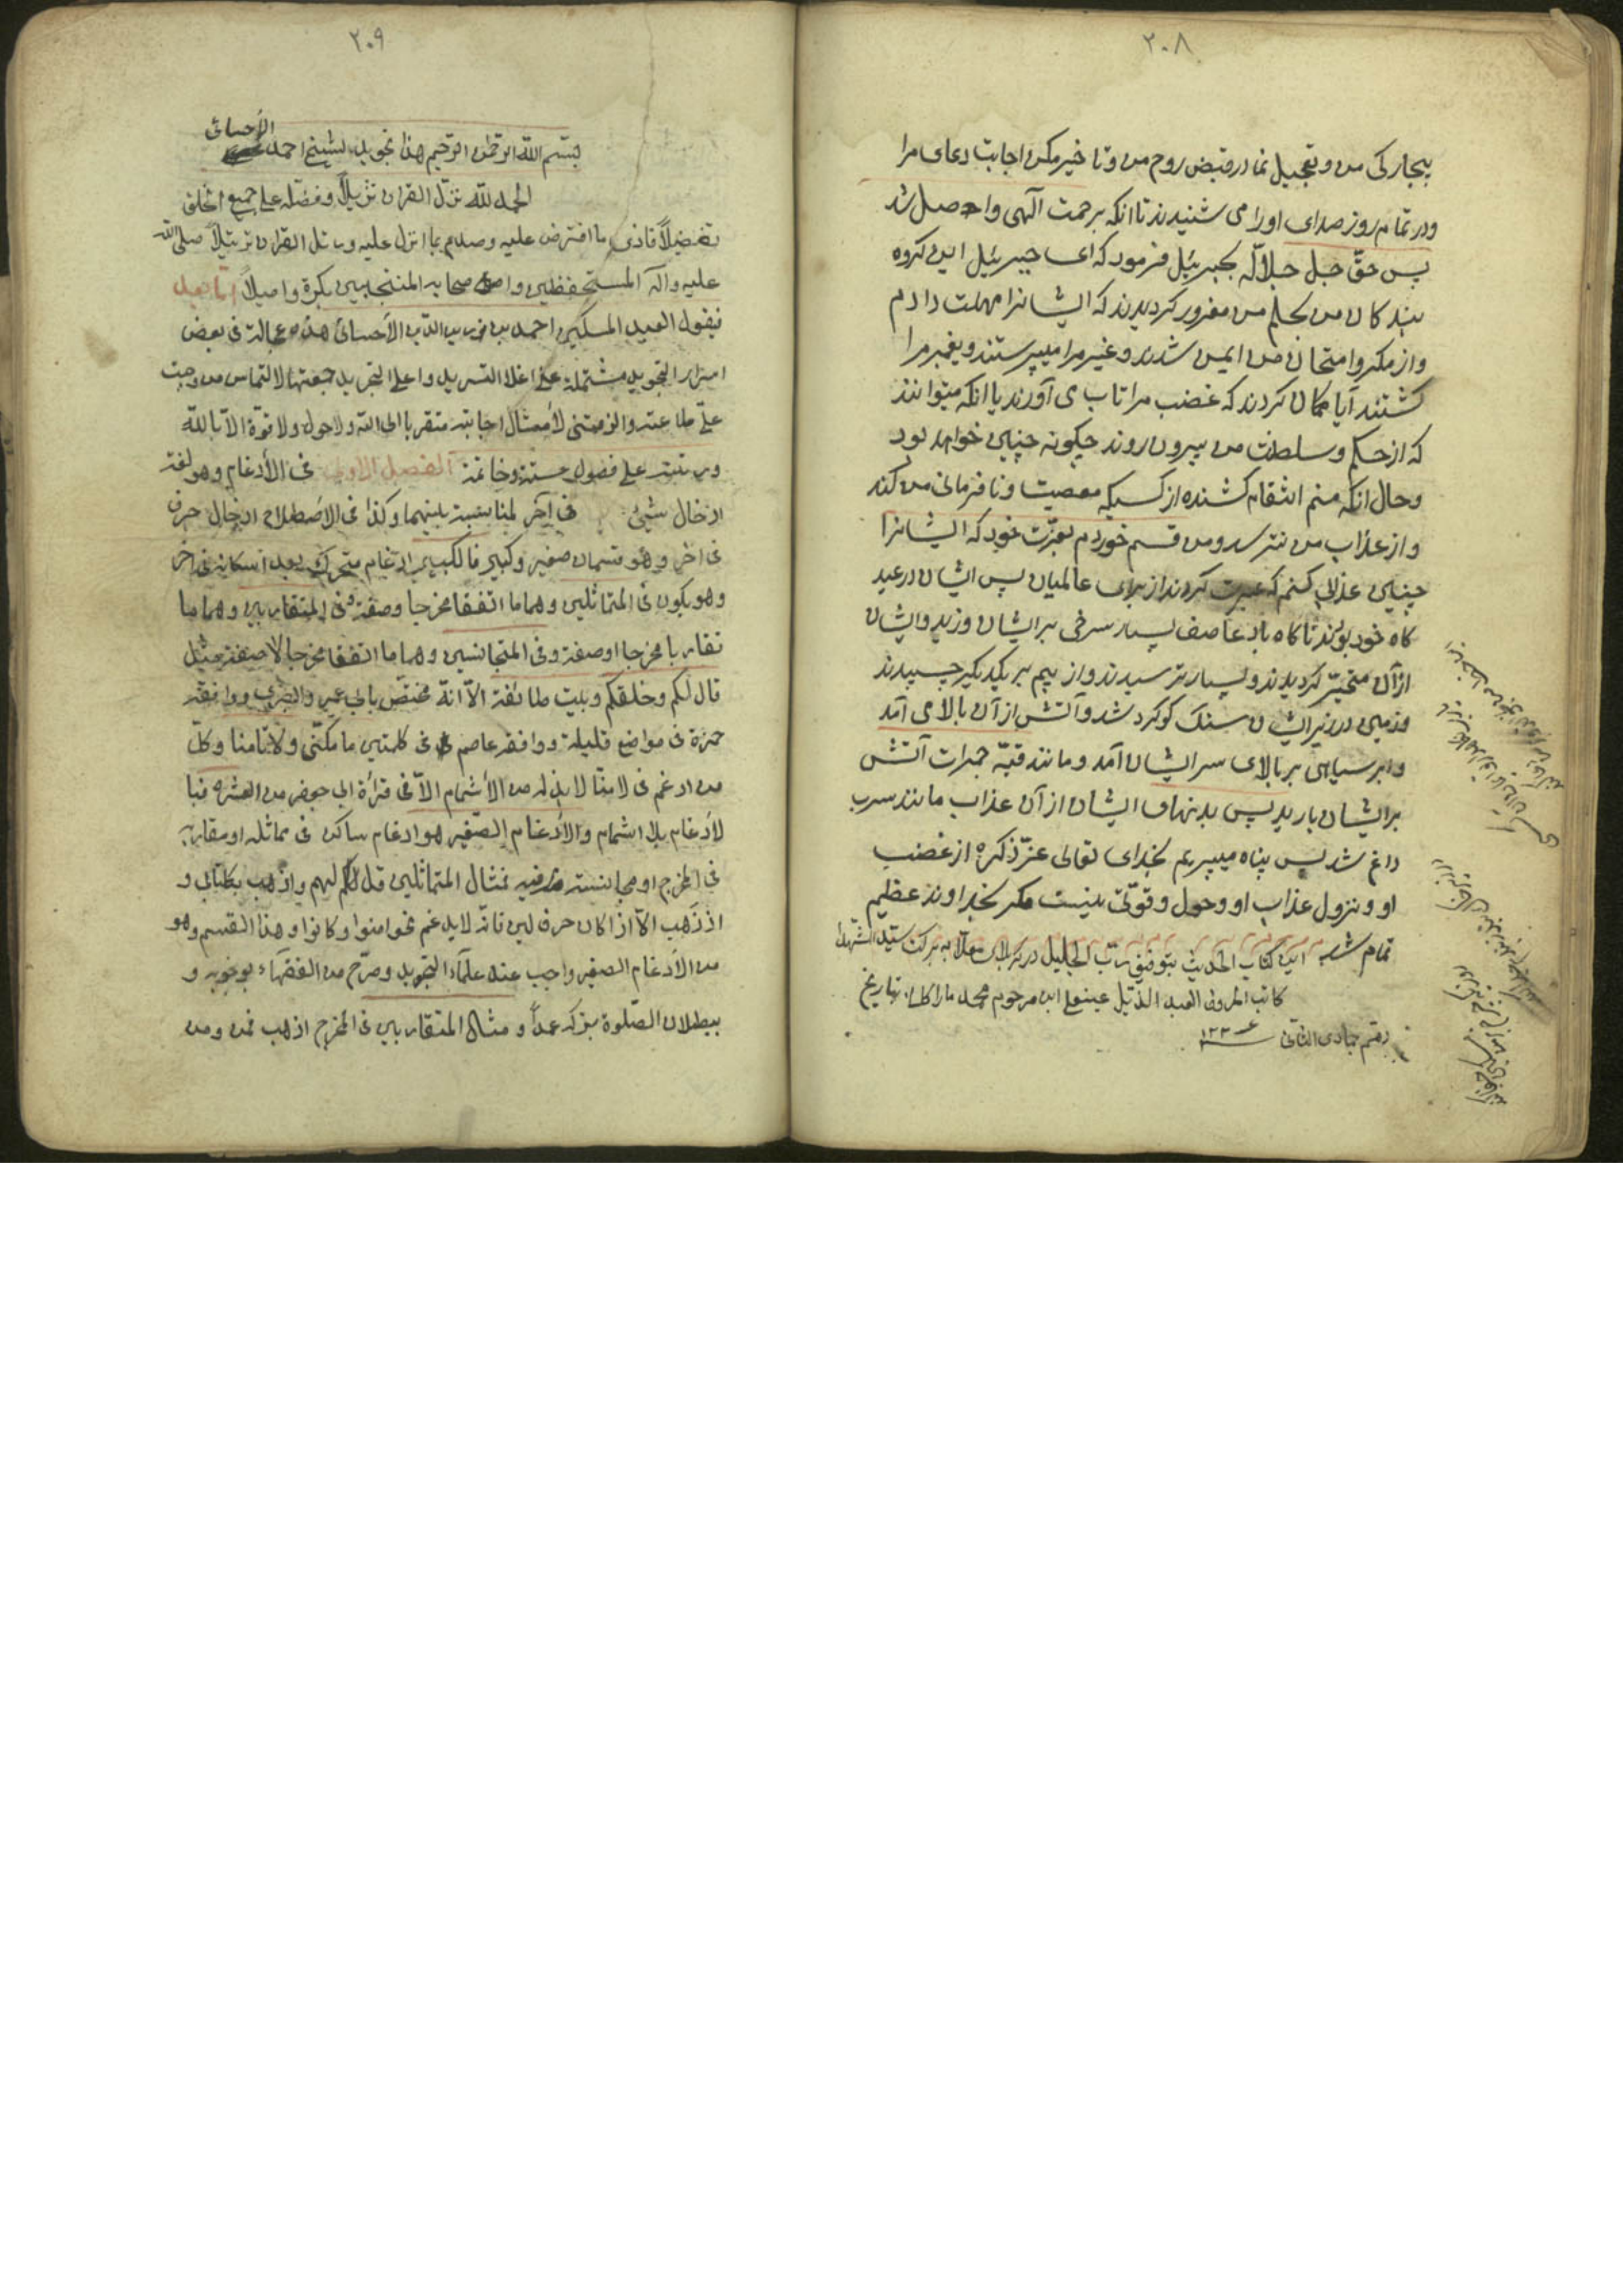 ٢٠٨
بیچارکی من و تعجیل نما در قبض روح من و تاخیر مکن اجابت دعای مرا
و در تمام روز صدای او را می شنیدند تا انکه برحمت آلهی واصل شد
پس حقّ جل جلاله بجبرئیل فرمود که ای جبرئیل این کروه
بندکان من بحلم من مغرور کردیدند که ایشانرا مهلت دادم
و از مکر و امتحان من ایمن شدند و غیر مرا میپرستند و پیغمبر مرا
کشتند آیا کمان کردند که غضب مرا تاب می آورند یا انکه میتوانند
که از حکم و سلطنت من بیرون روند چکونه چنین خواهد بود
و حال انکه منم انتقام کشنده از کسیکه معصیت و نافرمانی من کند
و از عذاب من نترسد و من قسم خوردم بعزّت خود که ایشانرا
چنین عذابی کنم که عبرت کردند از برای عالمیان پس ایشان در عید
کاه خود بودند تا کاه باد عاصف بسیار سرخی بر ایشان وزید و ایشان
از آن متحیّر کردیدند و بسیار ترسیدند و از بیم بر یکدیکر چسپیدند
و زمین در زیر ایشان سنک کوکرد شد و آتش از آن بالا می آمد
و ابر سیاهی بر بالای سر ایشان آمد و مانند قبّه جمرات آتش
بر ایشان بارید پس بدنهای ایشان از آن عذاب مانند سرب
داغ شد پس پناه میبریم بخدای تعالی عزّ ذکره از غضب
او و نزول عذاب او و حول و قوّتی نیست مکر بخداوند عظیم
تمام شد این کتاب الحدیث بتوفیق ربّ الجلیل در کربلای معلّا به برکت سیّد الشهدا
کاتب الحروف العبد الذلیل ابن مرحوم محمد بتاریخ
جمادی الثانی ١٢٣٤
٢٠٩
بسم الله الرحمن الرحیم هذا تجوید لشیخ احمد الأحسائی
الحمد لله نزّل القران تنزیلاً و فضّله علی جمیع الخلق
تفضیلاً فادّی ما افترض علیه و صدع بما انزل علیه و رتل القران ترتیلاً صلی الله
علیه و آله المستحفظین و اصحابه المنتجبین بکرة و اصیلاً اما بعد
فیقول العبد المسکین احمد بن زین الدّین الأحسائی هذه عجالة فی بعض
اسرار التجوید مشتملة علی التجرید جمعتها لالتماس من وجبت
علیّ طاعته و الزمتنی لأمتثال اجابته متقربا الی الله و لا حول و لا قوّة الّا بالله
و رتبته علی فصول ستة و خاتمة الفصل الاول فی الأدغام و هو لغة
ادخال شیئ فی آخر لمناسبة بینهما و کذا فی الاصطلاح ادخال حرف
فی اخر و هو قسمان صغیر و کبیر فالکبیر ادغام متحرک بعد اسکانه فی اخر
و هو یکون فی المتماثلین و هما ما اتفقا مخرجا و صفة و فی المتقاربین و هما ما
تقاربا مخرجا او صفة و فی المتجانسین و هما ما اتفقا مخرجا لا صفة مثل
قال لکم و خلقکم و بیت طائفة الّا انّه مختصّ بابی عمرو البصری و وافقه
حمزة فی مواضع قلیلة و وافقه عاصم فی کلمتین ما مکنّی و لا تامنا و کلّ
من ادغم فی لا تامنّا لا بد له من الأشمام الّا فی قرأة ابی جعفر من العشره فبا
لأدغام بلا اشمام و الأدغام الصّغیر هو ادغام ساکن فی مماثله او مقاربه
فی المخرج او مجانسته فیه فمثال المتماثلین قل لهم و اذهب بکتابی و
اذ ذهب الّا اذا کان حرف لین فانّه لا یدغم نحو امنوا و کانوا و هذا القسم و هو
من الأدغام الصغیر واجب عند علمآء التجوید و صرّح من الفقهآء بوجوبه و
ببطلان الصّلوة بترکه عمداً و مثال المتقاربین فی المخرج اذهب فمن و من